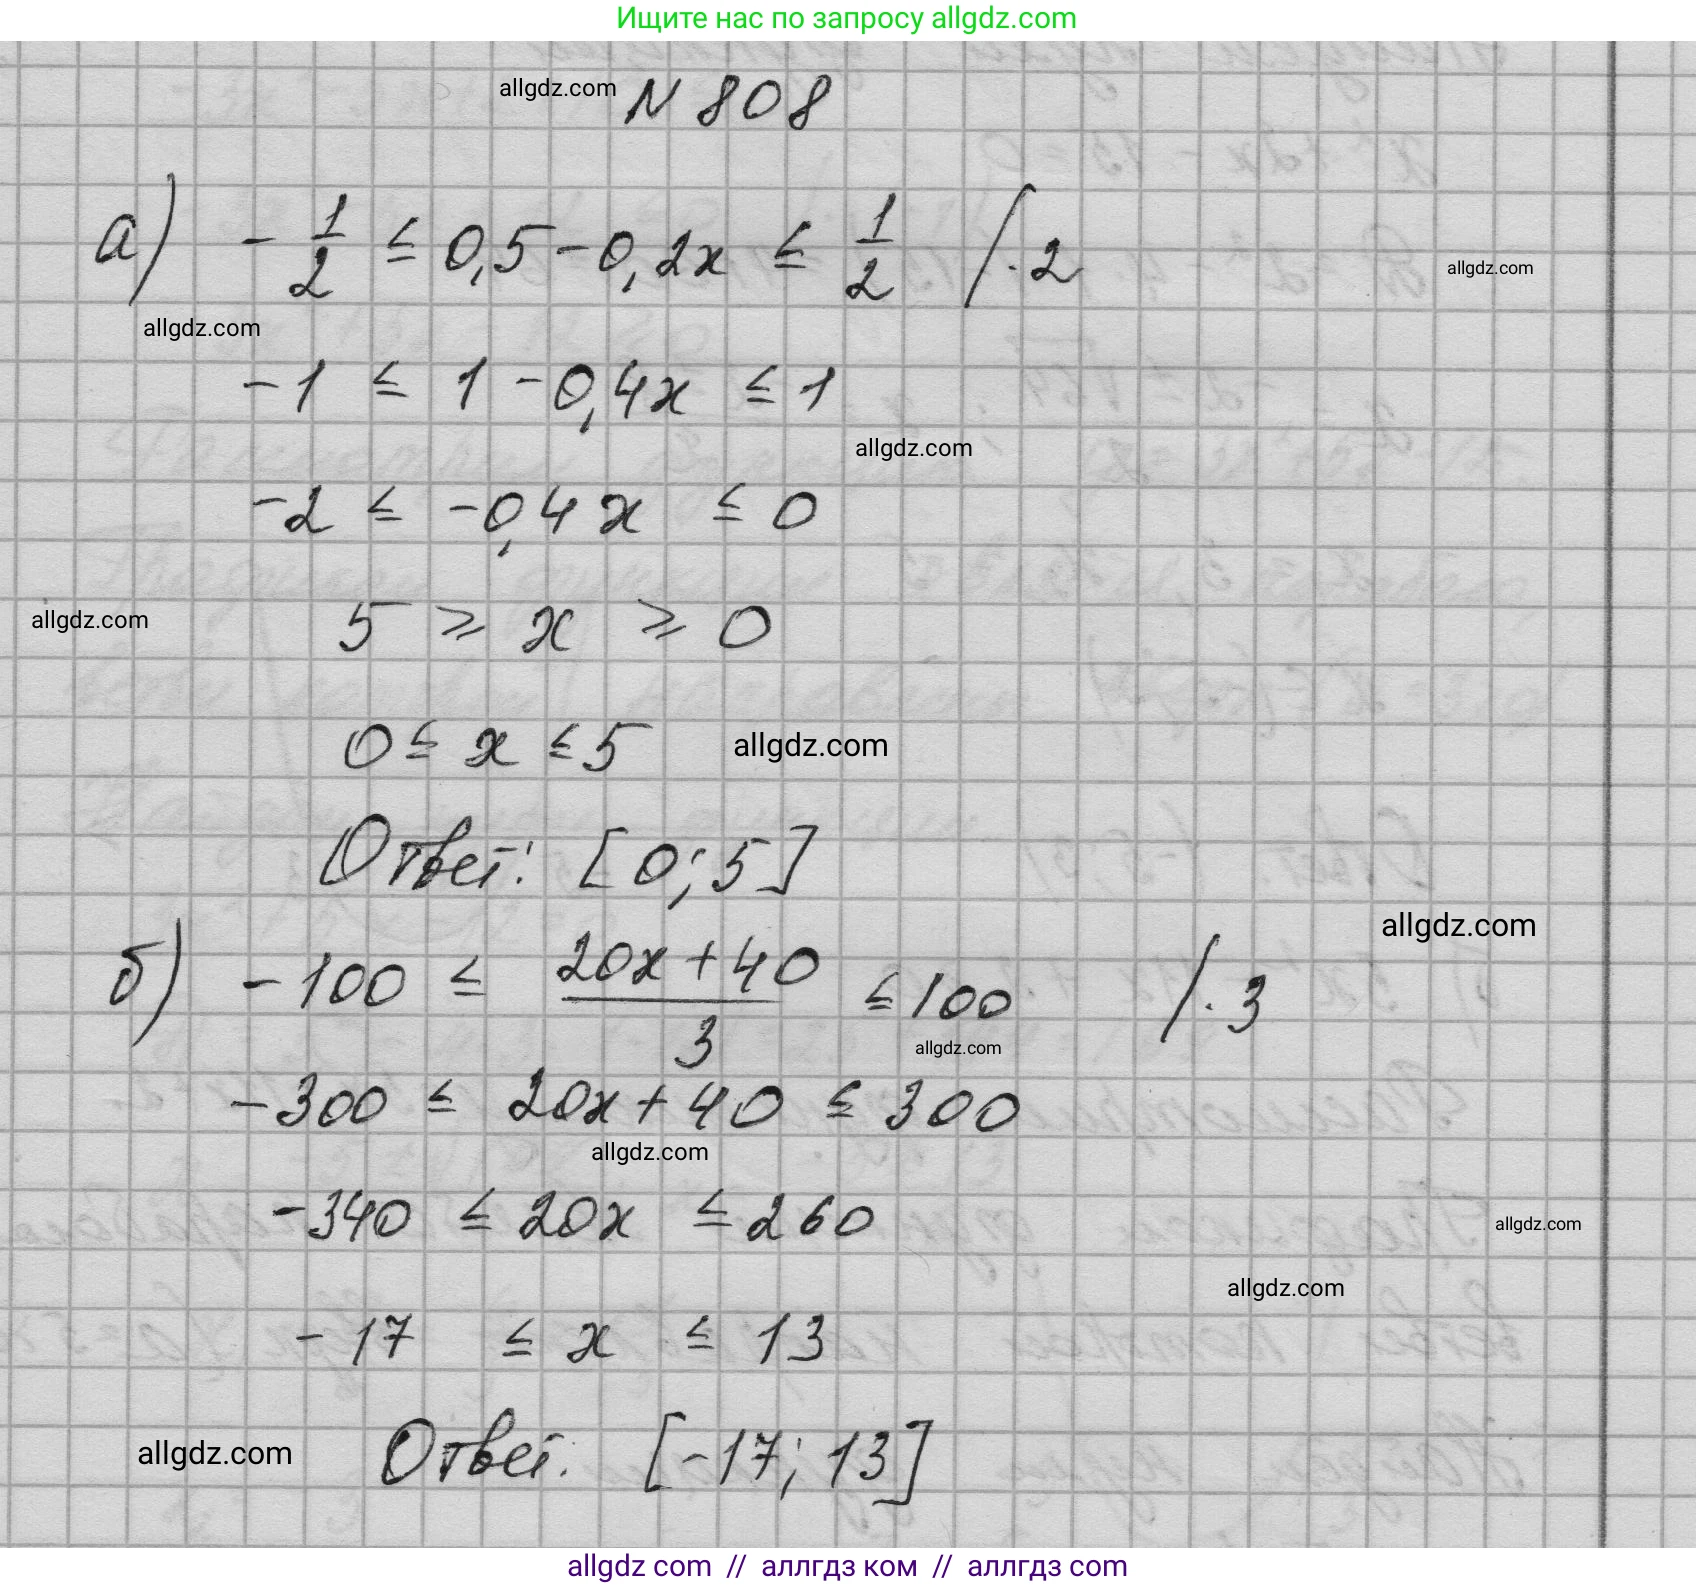 Ищите нас по запросу allgdz.com
allgdz.com N 808
а) -1/2 ≤ 0,5-0,2x ≤ 1/2 /·2
allgdz.com
allgdz.com
-1 ≤ 1-0,4x ≤ 1
allgdz.com
-2 ≤ -0,4x ≤ 0
allgdz.com
5 ≥ x ≥ 0
0 ≤ x ≤ 5 allgdz.com
Ответ: [0; 5]
allgdz.com
б) -100 ≤ (20x+40)/3 ≤ 100 /·3
allgdz.com
-300 ≤ 20x+40 ≤ 300
allgdz.com
-340 ≤ 20x ≤ 260
allgdz.com
allgdz.com
-17 ≤ x ≤ 13
allgdz.com Ответ: [-17; 13]
allgdz com // аллгдз ком // аллгдз com